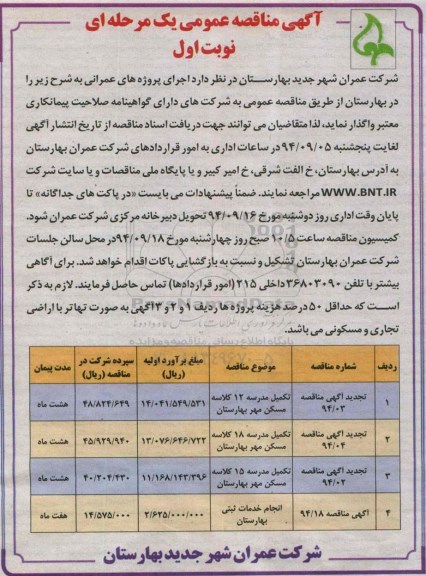 آگهی مناقصه عمومی یک مرحله ای
نوبت اول
شرکت عمران شهر جدید بهارستان در نظر دارد اجرای پروژه های عمرانی به شرح زیر را
در بهارستان از طریق مناقصه عمومی به شرکت های دارای گواهینامه صلاحیت پیمانکاری
معتبر واگذار نماید، لذا متقاضیان می توانند جهت دریافت اسناد مناقصه از تاریخ انتشار آگهی
لغایت پنجشنبه ۹۴/۰۹/۰۵ در ساعات اداری به امور قراردادهای شرکت عمران بهارستان
به آدرس بهارستان، خ الفت شرقی، خ امیر کبیر و یا پایگاه ملی مناقصات و یا سایت شرکت
WWW.BNT.IR مراجعه نمایند. ضمناً پیشنهادات می بایست «در پاکت های جداگانه» تا
پایان وقت اداری روز دوشنبه مورخ ۹۴/۰۹/۱۶ تحویل دبیرخانه مرکزی شرکت عمران شود.
کمیسیون مناقصه ساعت ۱۰/۵ صبح روز چهارشنبه مورخ ۹۴/۰۹/۱۸ در محل سالن جلسات
شرکت عمران بهارستان تشکیل و نسبت به بازگشایی پاکات اقدام خواهد شد. برای آگاهی
بیشتر با تلفن ۳۶۸۰۳۰۹۰ داخلی ۲۱۵ (امور قراردادها) تماس حاصل فرمایند. لازم به ذکر
است که حداقل ۵۰ درصد هزینه پروژه ها ردیف ۱ و ۲ و ۳ آگهی به صورت تهاتر با اراضی
تجاری و مسکونی می باشد.
ردیف شماره مناقصه موضوع مناقصه مبلغ برآورد اولیه (ریال) سپرده شرکت در مناقصه (ریال) مدت پیمان
۱ تجدید آگهی مناقصه ۹۴/۰۳ تکمیل مدرسه ۱۲ کلاسه مسکن مهر بهارستان ۱۴/۰۴۱/۵۴۹/۵۳۱ ۴۸/۸۲۴/۶۴۹ هشت ماه
۲ تجدید آگهی مناقصه ۹۴/۰۴ تکمیل مدرسه ۱۸ کلاسه مسکن مهر بهارستان ۱۳/۰۷۶/۶۴۶/۷۲۲ ۴۵/۹۲۹/۹۴۰ هشت ماه
۳ تجدید آگهی مناقصه ۹۴/۰۲ تکمیل مدرسه ۱۵ کلاسه مسکن مهر بهارستان ۱۱/۱۶۸/۱۴۳/۳۹۶ ۴۰/۲۰۴/۴۳۰ هشت ماه
۴ آگهی مناقصه ۹۴/۱۸ انجام خدمات ثبتی بهارستان ۲/۶۲۵/۰۰۰/۰۰۰ ۱۴/۵۷۵/۰۰۰ هفت ماه
شرکت عمران شهر جدید بهارستان